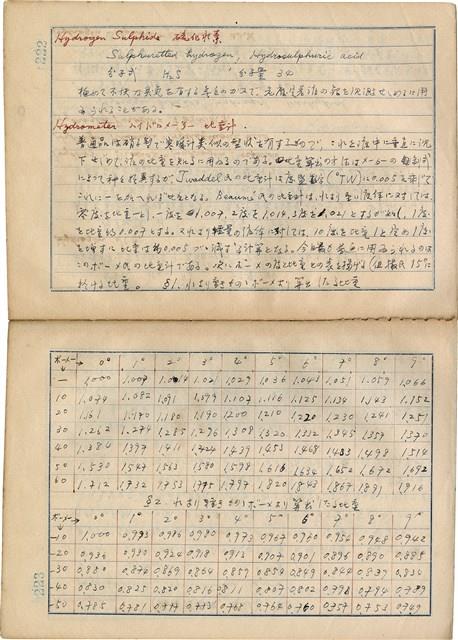 222
Hydrogen Sulphide 硫化水素
Sulphuretted hydrogen, Hydrosulphuric acid
分子式 H₂S 分子量 34
極めて不快な臭気を有する
られることがある。
Hydrometer ハイドロメーター 比重計.
普通品は硝子製で
下せしめて液の比重を知るに用ゐるのである。比重算出の方法はメーターの
によって Twaddel氏の比重計は度盛数字(°TW)に0.005を乗じて
これに一を加へれば比重となる。Beaumé氏の比重計は、水より重い液体に対しては、
零度を比重一とし、一度を1.007, 2度を1.014, 3度を1.021とする如く、1度
を比重約0.007とする。水より軽量の液体に対しては、10度を比重1と
を増すに比重は約0.005づつ減ずる計算となる。
このボーメ氏の比重計である。次にボーメの度と比重との表を掲げる(但摂氏15°に
於ける比重。 §1. 水より重きものをボーメより算出したる比重
ボーメ→ 0° 1° 2° 3° 4° 5° 6° 7° 8° 9°
— 1.000 1.007 1.014 1.021 1.029 1.036 1.043 1.051 1.059 1.066
10 1.074 1.082 1.091 1.099 1.107 1.116 1.125 1.134 1.143 1.152
20 1.161 1.170 1.180 1.190 1.200 1.210 1.220 1.230 1.241 1.251
30 1.262 1.274 1.285 1.296 1.308 1.320 1.332 1.345 1.357 1.370
40 1.384 1.397 1.411 1.424 1.439 1.453 1.468 1.483 1.498 1.514
50 1.530 1.547 1.563 1.580 1.598 1.616 1.634 1.652 1.672 1.692
60 1.712 1.732 1.753 1.775 1.797 1.820 1.843 1.867 1.891 1.916
§2. 水より軽きものをボーメより算出したる比重
ボーメ→ 0° 1° 2° 3° 4° 5° 6° 7° 8° 9°
-10 1.000 0.993 0.986 0.980 0.973 0.967 0.960 0.954 0.948 0.942
-20 0.936 0.930 0.924 0.918 0.913 0.907 0.901 0.896 0.890 0.885
-30 0.880 0.874 0.869 0.864 0.859 0.854 0.849 0.844 0.839 0.834
-40 0.830 0.825 0.820 0.816 0.811 0.807 0.802 0.798 0.794 0.789
-50 0.785 0.781 0.777 0.773 0.768 0.764 0.760 0.757 0.753 0.749
223